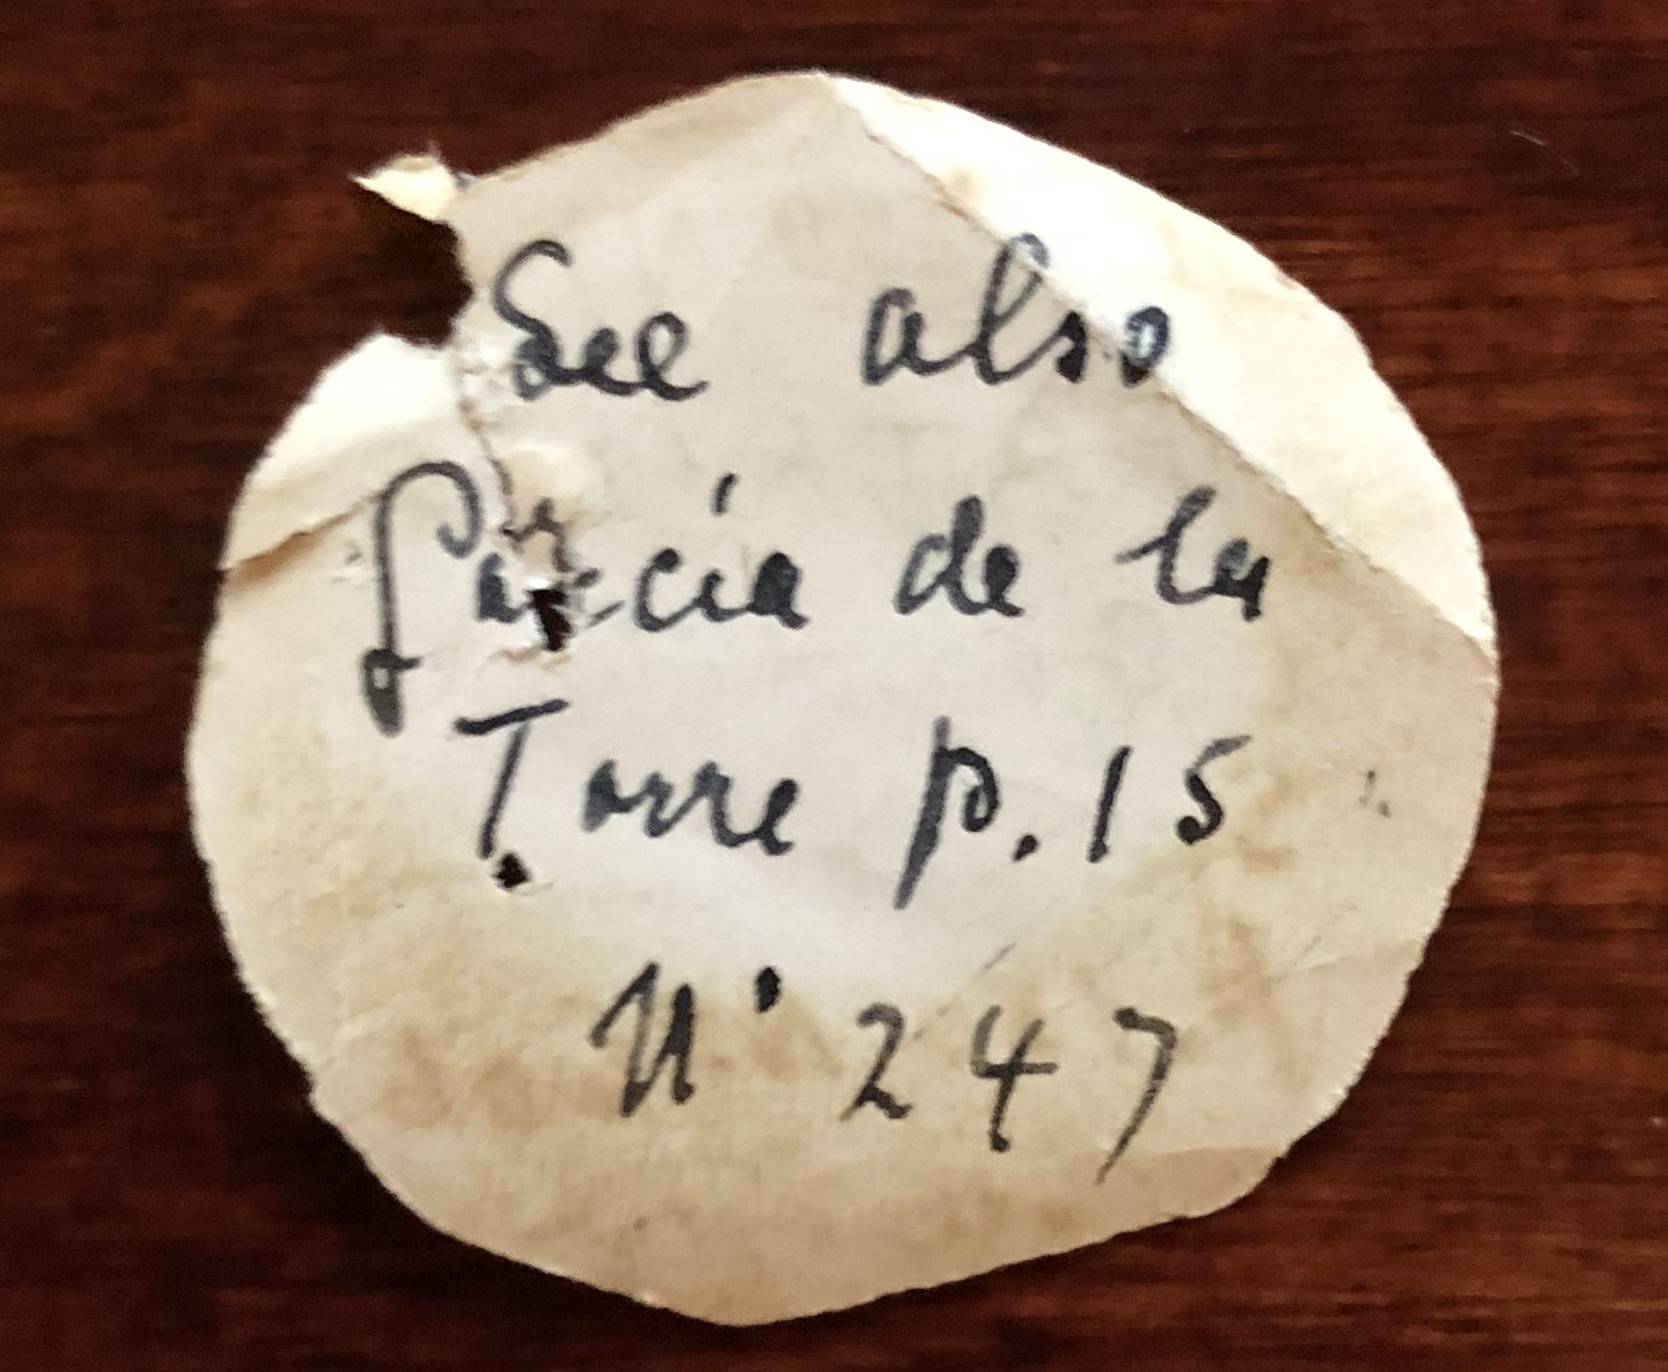 See also
García de la
Torre p. 15
N° 247